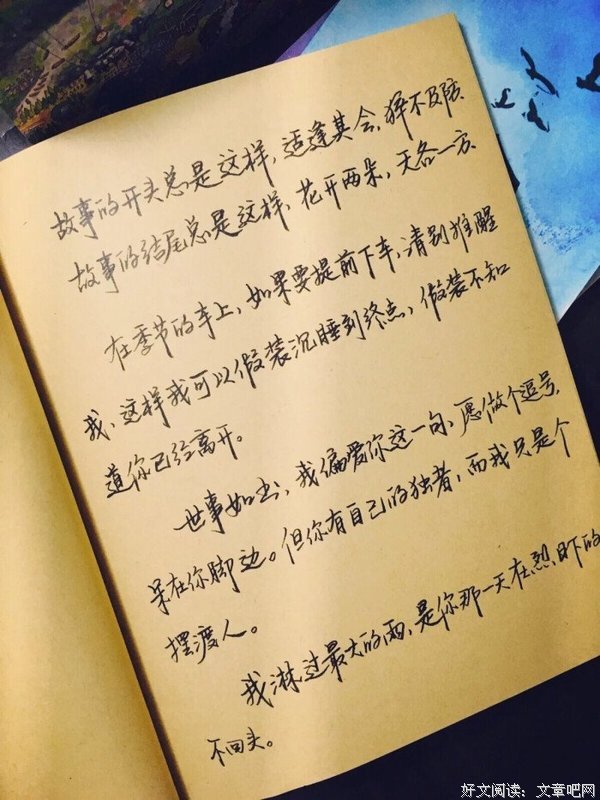 故事的开头总是这样，适逢其会，猝不及防
故事的结尾总是这样，花开两朵，天各一方
在季节的车上，如果要提前下车，请别推醒
我，这样我可以假装沉睡到终点，假装不知
道你已经离开。
世事如书，我偏爱你这一句，愿做个逗号，
呆在你脚边。但你有自己的独者，而我只是个
摆渡人。
我淋过最大的雨，是你那一天在烈日下的
不回头。
好文阅读：文章吧网